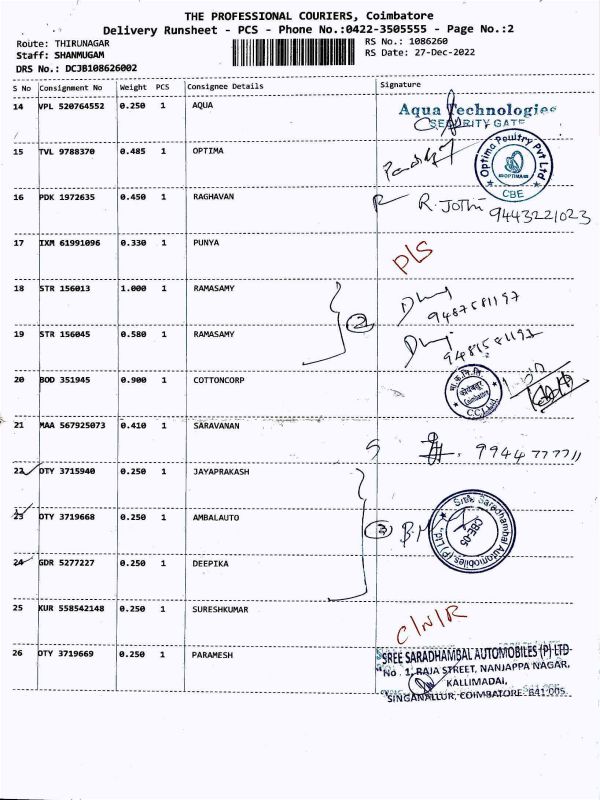 THE PROFESSIONAL COURIERS, Coimbatore
Delivery Runsheet - PCS - Phone No.:0422-3505555 - Page No.:2
Route: THIRUNAGAR
RS No.: 1086260
Staff: SHANMUGAM
RS Date: 27-Dec-2022
DRS No.: DCJB108626002
S No Consignment No Weight PCS Consignee Details Signature
14 VPL 520764552 0.250 1 AQUA
Aqua Technologies
SECURITY GATE
15 TVL 9788370 0.485 1 OPTIMA
Optima Poultry Pvt Ltd
OPTIMA
CBE
16 PDK 1972635 0.450 1 RAGHAVAN
R. Jothi 9443221023
17 IXM 61991096 0.330 1 PUNYA
P/S
18 STR 156013 1.000 1 RAMASAMY
2
9487581197
19 STR 156045 0.580 1 RAMASAMY
20 BOD 351945 0.900 1 COTTONCORP
Coimbatore
CCI Ltd
21 MAA 567925073 0.410 1 SARAVANAN
22 DTY 3715940 0.250 1 JAYAPRAKASH
23 DTY 3719668 0.250 1 AMBALAUTO
3
Sree Saradhambal Automobiles (P) Ltd
CBE-05
24 GDR 5277227 0.250 1 DEEPIKA
25 KUR 558542148 0.250 1 SURESHKUMAR
C/N/R
26 DTY 3719669 0.250 1 PARAMESH
SREE SARADHAMBAL AUTOMOBILES (P) LTD
No. 1, RAJA STREET, NANJAPPA NAGAR,
KALLIMADAI,
SINGANALLUR, COIMBATORE - 641 005